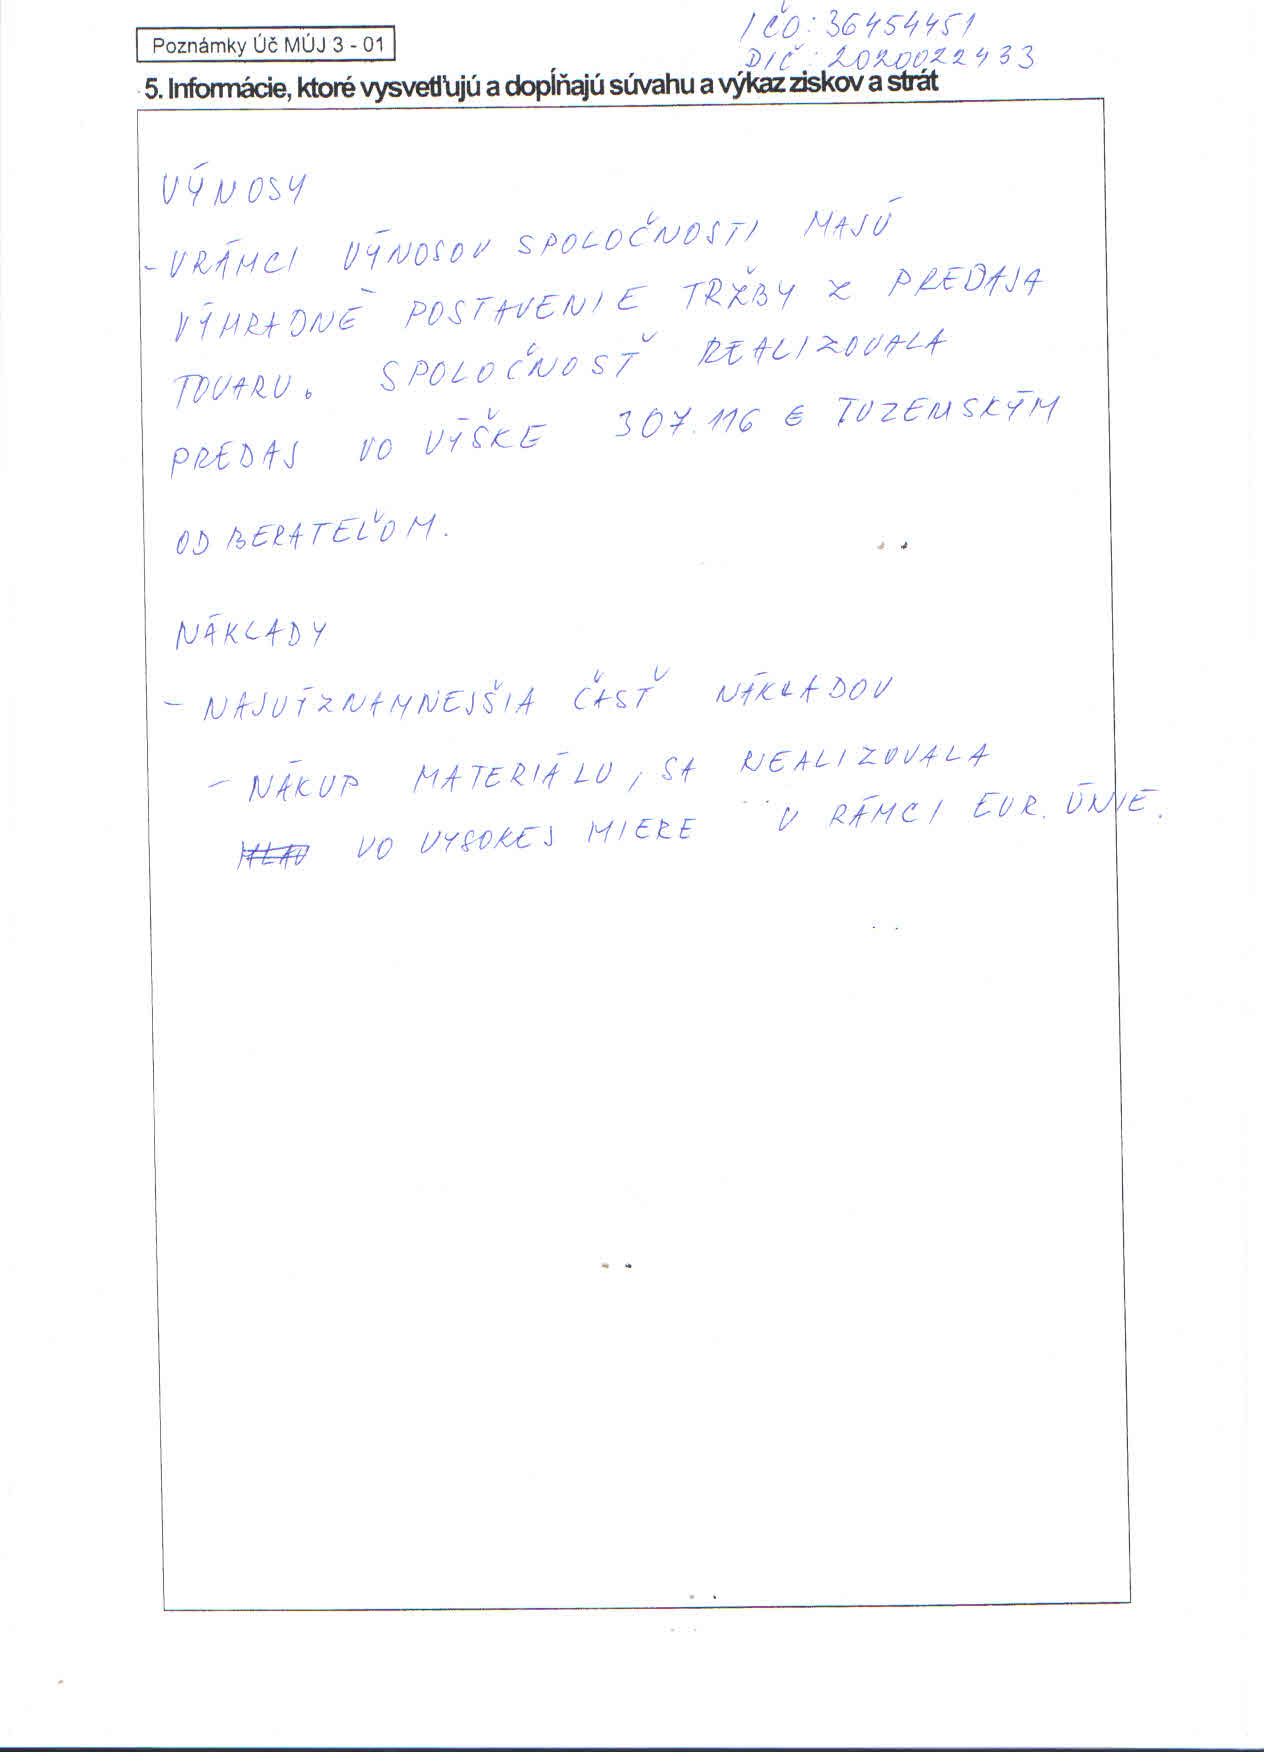 IČO: 36454451
Poznámky Úč MÚJ 3 - 01
DIČ: 2020022433
5. Informácie, ktoré vysvetľujú a dopĺňajú súvahu a výkaz ziskov a strát
VÝNOSY
- VRÁMCI VÝNOSOV SPOLOČNOSTI MAJÚ
VÝHRADNÉ POSTAVENIE TRŽBY Z PREDAJA
TOVARU. SPOLOČNOSŤ REALIZOVALA
PREDAJ VO VÝŠKE 307.116 € TUZEMSKÝM
ODBERATEĽOM.
NÁKLADY
- NAJVÝZNAMNEJŠIA ČASŤ NÁKLADOV
- NÁKUP MATERIÁLU, SA REALIZOVALA
VO VYSOKEJ MIERE V RÁMCI EUR. ÚNIE.